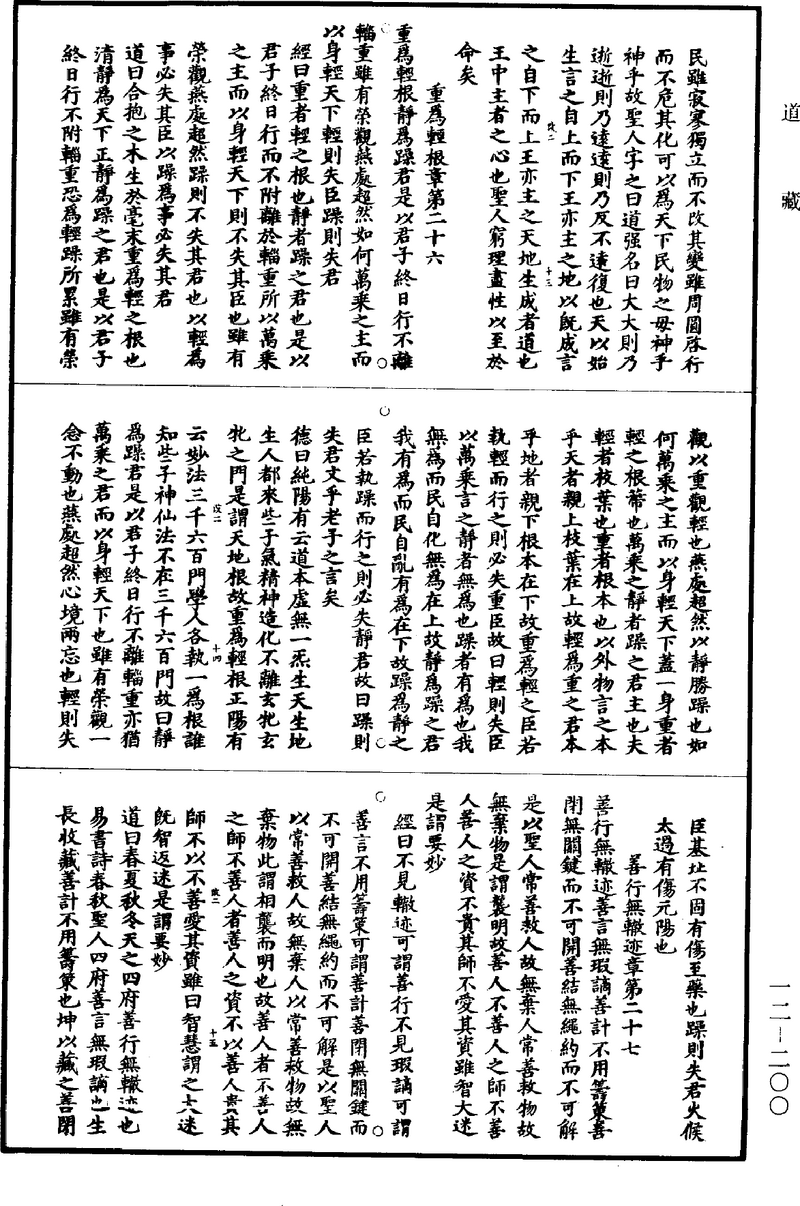 道藏
民雖寂寥獨立而不改其變雖周圓啓行
而不危其化可以為天下民物之母神乎
神乎故聖人字之曰道强名曰大大則乃
逝逝則乃遠遠則乃反不遠復也天以始
生言之自上而下王亦主之地以既成言
改二
十三
之自下而上王亦主之天地生成者道也
王中主者之心也聖人窮理盡性以至於
命矣
重為輕根章第二十六
重為輕根靜為躁君是以君子終日行不離
輜重雖有榮觀燕處超然如何萬乘之主而
以身輕天下輕則失臣躁則失君
經曰重者輕之根也靜者躁之君也是以
君子終日行而不附離於輜重所以萬乘
之主而以身輕天下則不失其臣也雖有
榮觀燕處超然躁則不失其君也以輕為
事必失其臣以躁為事必失其君
道曰合抱之木生於毫末重為輕之根也
清靜為天下正靜為躁之君也是以君子
終日行不附輜重恐為輕躁所累雖有榮
觀以重觀輕也燕處超然以靜勝躁也如
何萬乘之主而以身輕天下蓋一身重者
輕之根蔕也萬乘之靜者躁之君主也夫
輕者枝葉也重者根本也以外物言之本
乎天者親上枝葉在上故輕為重之君本
乎地者親下根本在下故重為輕之臣若
執輕而行之則必失重臣故曰輕則失臣
以萬乘言之靜者無為也躁者有為也我
無為而民自化無為在上故靜為躁之君
我有為而民自亂有為在下故躁為靜之
臣若執躁而行之則必失靜君故曰躁則
失君丈乎老子之言矣
德曰純陽有云道本虛無一炁生天生地
生人都來些子氣精神造化不離玄牝玄
牝之門是謂天地根故重為輕根正陽有
改二
十四
云妙法三千六百門學人各執一為根誰
知些子神仙法不在三千六百門故曰靜
為躁君是以君子終日行不離輜重亦猶
萬乘之君而以身輕天下也雖有榮觀一
念不動也燕處超然心境兩忘也輕則失
臣基址不固有傷至藥也躁則失君火候
太過有傷元陽也
善行無轍迹章第二十七
善行無轍迹善言無瑕讁善計不用籌策善
閉無關鍵而不可開善結無繩約而不可解
是以聖人常善救人故無棄人常善救物故
無棄物是謂襲明故善人不善人之師不善
人善人之資不貴其師不愛其資雖智大迷
是謂要妙
經曰不見轍迹可謂善行不見瑕讁可謂
善言不用籌策可謂善計善閉無關鍵而
不可開善結無繩約而不可解是以聖人
以常善救人故無棄人以常善救物故無
棄物此謂相襲而明也故善人者不善人
之師不善人者善人之資不以善人貴其
改二
十五
師不以不善愛其資雖曰智慧謂之大迷
既智返迷是謂要妙
道曰春夏秋冬天之四府善行無轍迹也
易書詩春秋聖人四府善言無瑕讁也生
長收藏善計不用籌策也坤以藏之善閉
一二-二〇〇